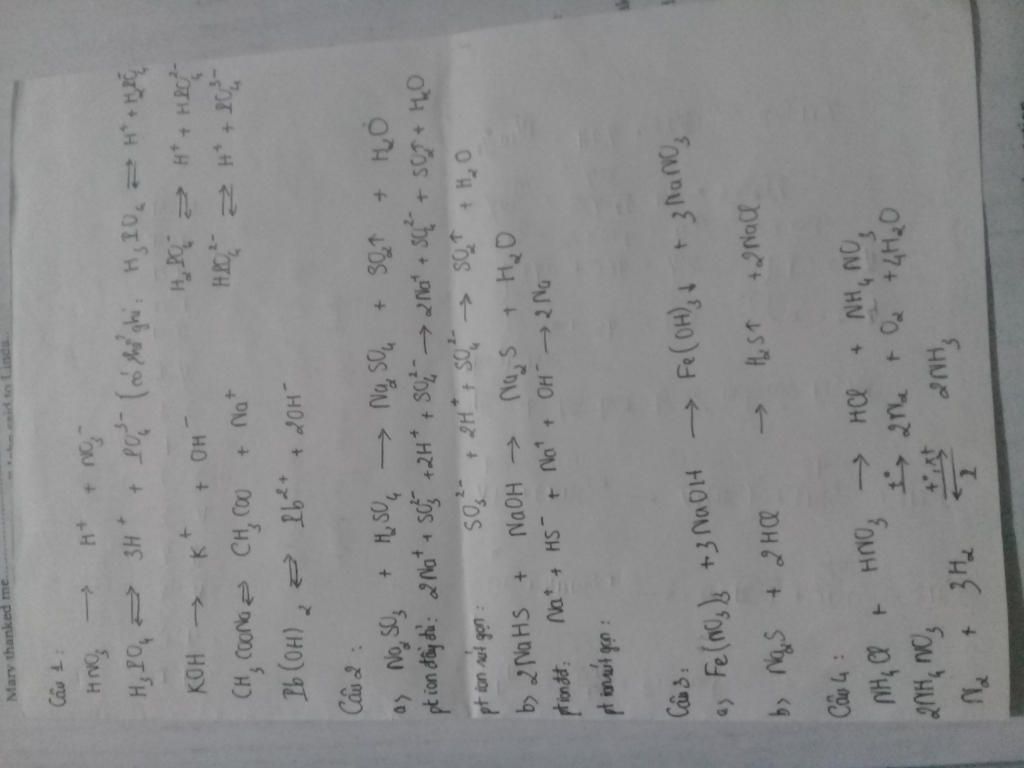 Mary thanked me
said to Linda.
Câu 1:
HNO₃ → H⁺ + NO₃⁻
H₃PO₄ ⇌ 3H⁺ + PO₄³⁻ (có thể ghi: H₃PO₄ ⇌ H⁺ + H₂PO₄⁻
H₂PO₄⁻ ⇌ H⁺ + HPO₄²⁻
HPO₄²⁻ ⇌ H⁺ + PO₄³⁻
KOH → K⁺ + OH⁻
CH₃COONa ⇌ CH₃COO + Na⁺
Pb(OH)₂ ⇌ Pb²⁺ + 2OH⁻
Câu 2:
a) Na₂SO₃ + H₂SO₄ → Na₂SO₄ + SO₂↑ + H₂O
pt ion đầy đủ: 2Na⁺ + SO₃⁻ + 2H⁺ + SO₄²⁻ → 2Na⁺ + SO₄²⁻ + SO₂↑ + H₂O
pt ion rút gọn: SO₃²⁻ + 2H⁺ + SO₄²⁻ → SO₂↑ + H₂O
b) 2NaHS + NaOH → Na₂S + H₂O
pt ion đđ: Na⁺ + HS⁻ + Na⁺ + OH⁻ → 2Na
pt ion rút gọn:
Câu 3:
a) Fe(NO₃)₃ + 3NaOH → Fe(OH)₃↓ + 3NaNO₃
b) Na₂S + 2HCl → H₂S↑ + 2NaCl
Câu 4:
NH₄Cl + HNO₃ → HCl + NH₄NO₃
2NH₄NO₃ t° → 2N₂ + O₂ + 4H₂O
N₂ + 3H₂ ⇌ 2NH₃